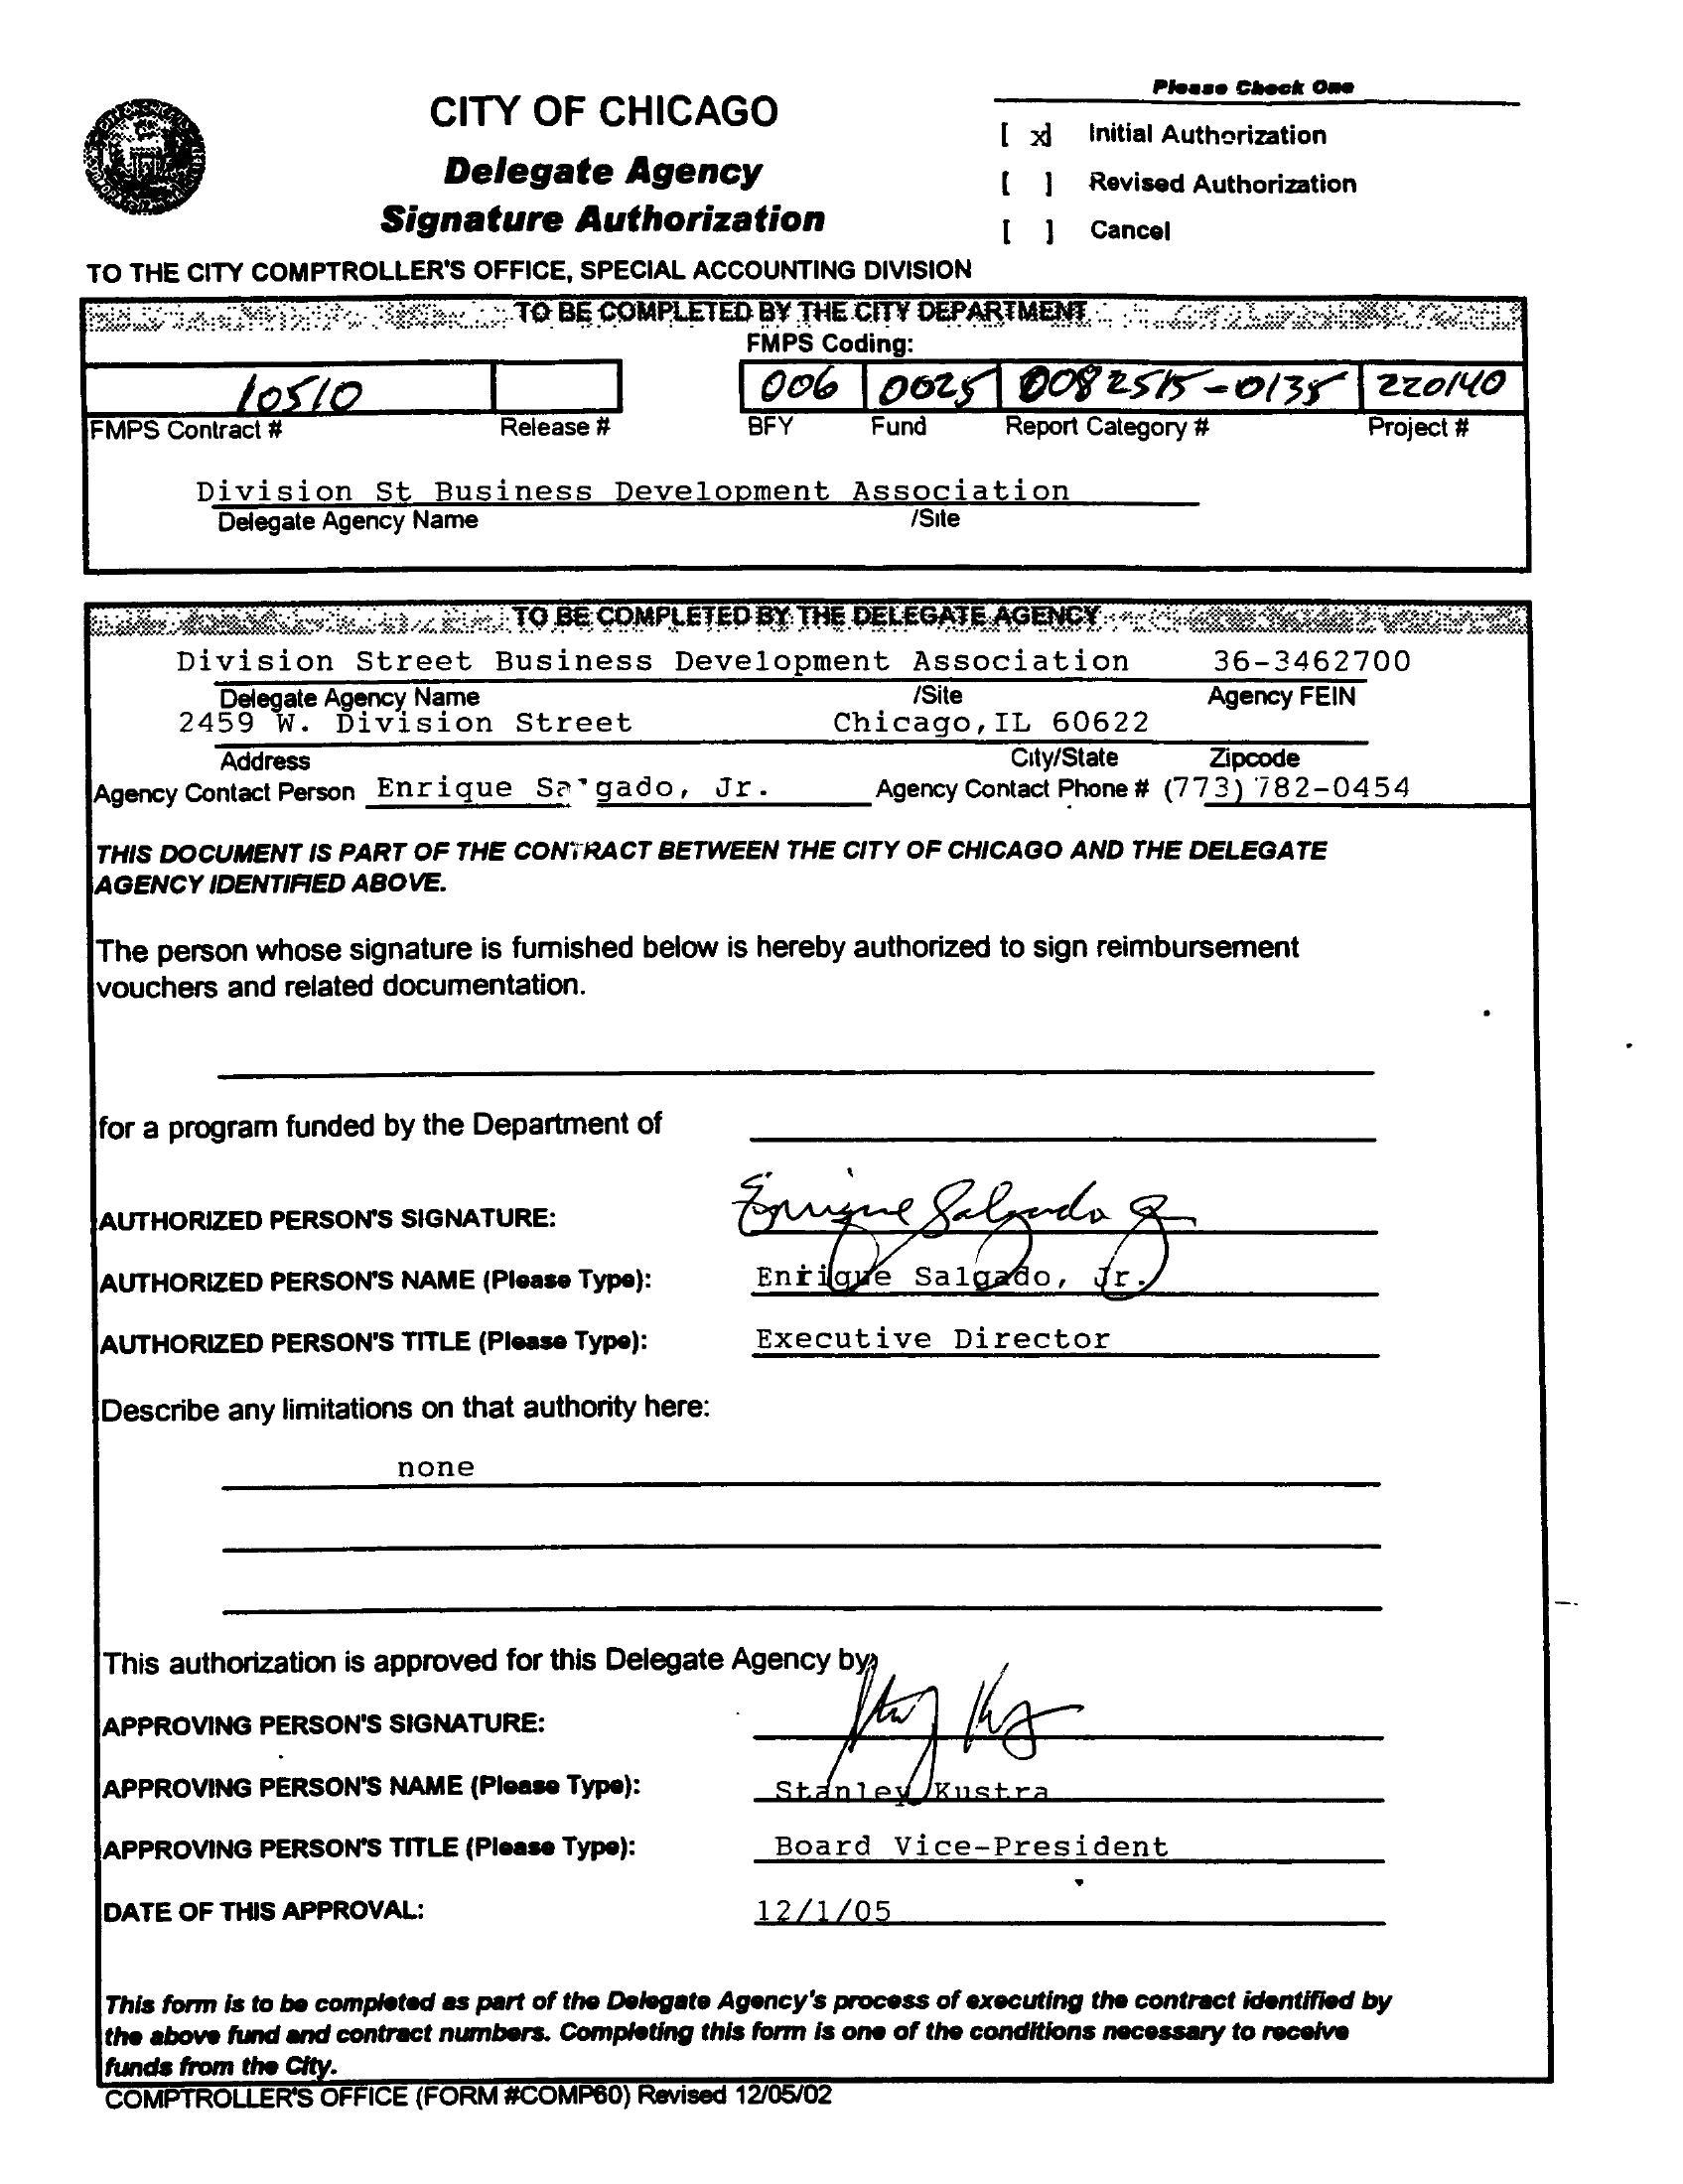 Please Check One
CITY OF CHICAGO
Delegate Agency
Signature Authorization
[ x] Initial Authorization
[ ] Revised Authorization
[ ] Cancel
TO THE CITY COMPTROLLER'S OFFICE, SPECIAL ACCOUNTING DIVISION
TO BE COMPLETED BY THE CITY DEPARTMENT
FMPS Coding:
10510 006 0025 0082515-0135 220140
FMPS Contract # Release # BFY Fund Report Category # Project #
Division St Business Development Association
Delegate Agency Name /Site
TO BE COMPLETED BY THE DELEGATE AGENCY
Division Street Business Development Association 36-3462700
Delegate Agency Name /Site Agency FEIN
2459 W. Division Street Chicago,IL 60622
Address City/State Zipcode
Agency Contact Person Enrique Salgado, Jr. Agency Contact Phone # (773) 782-0454
THIS DOCUMENT IS PART OF THE CONTRACT BETWEEN THE CITY OF CHICAGO AND THE DELEGATE
AGENCY IDENTIFIED ABOVE.
The person whose signature is furnished below is hereby authorized to sign reimbursement
vouchers and related documentation.
for a program funded by the Department of
AUTHORIZED PERSON'S SIGNATURE: Enrique Salgado Jr
AUTHORIZED PERSON'S NAME (Please Type): Enrique Salgado, Jr.
AUTHORIZED PERSON'S TITLE (Please Type): Executive Director
Describe any limitations on that authority here:
none
This authorization is approved for this Delegate Agency by:
APPROVING PERSON'S SIGNATURE:
APPROVING PERSON'S NAME (Please Type): Stanley Kustra
APPROVING PERSON'S TITLE (Please Type): Board Vice-President
DATE OF THIS APPROVAL: 12/1/05
This form is to be completed as part of the Delegate Agency's process of executing the contract identified by
the above fund and contract numbers. Completing this form is one of the conditions necessary to receive
funds from the City.
COMPTROLLER'S OFFICE (FORM #COMP60) Revised 12/05/02